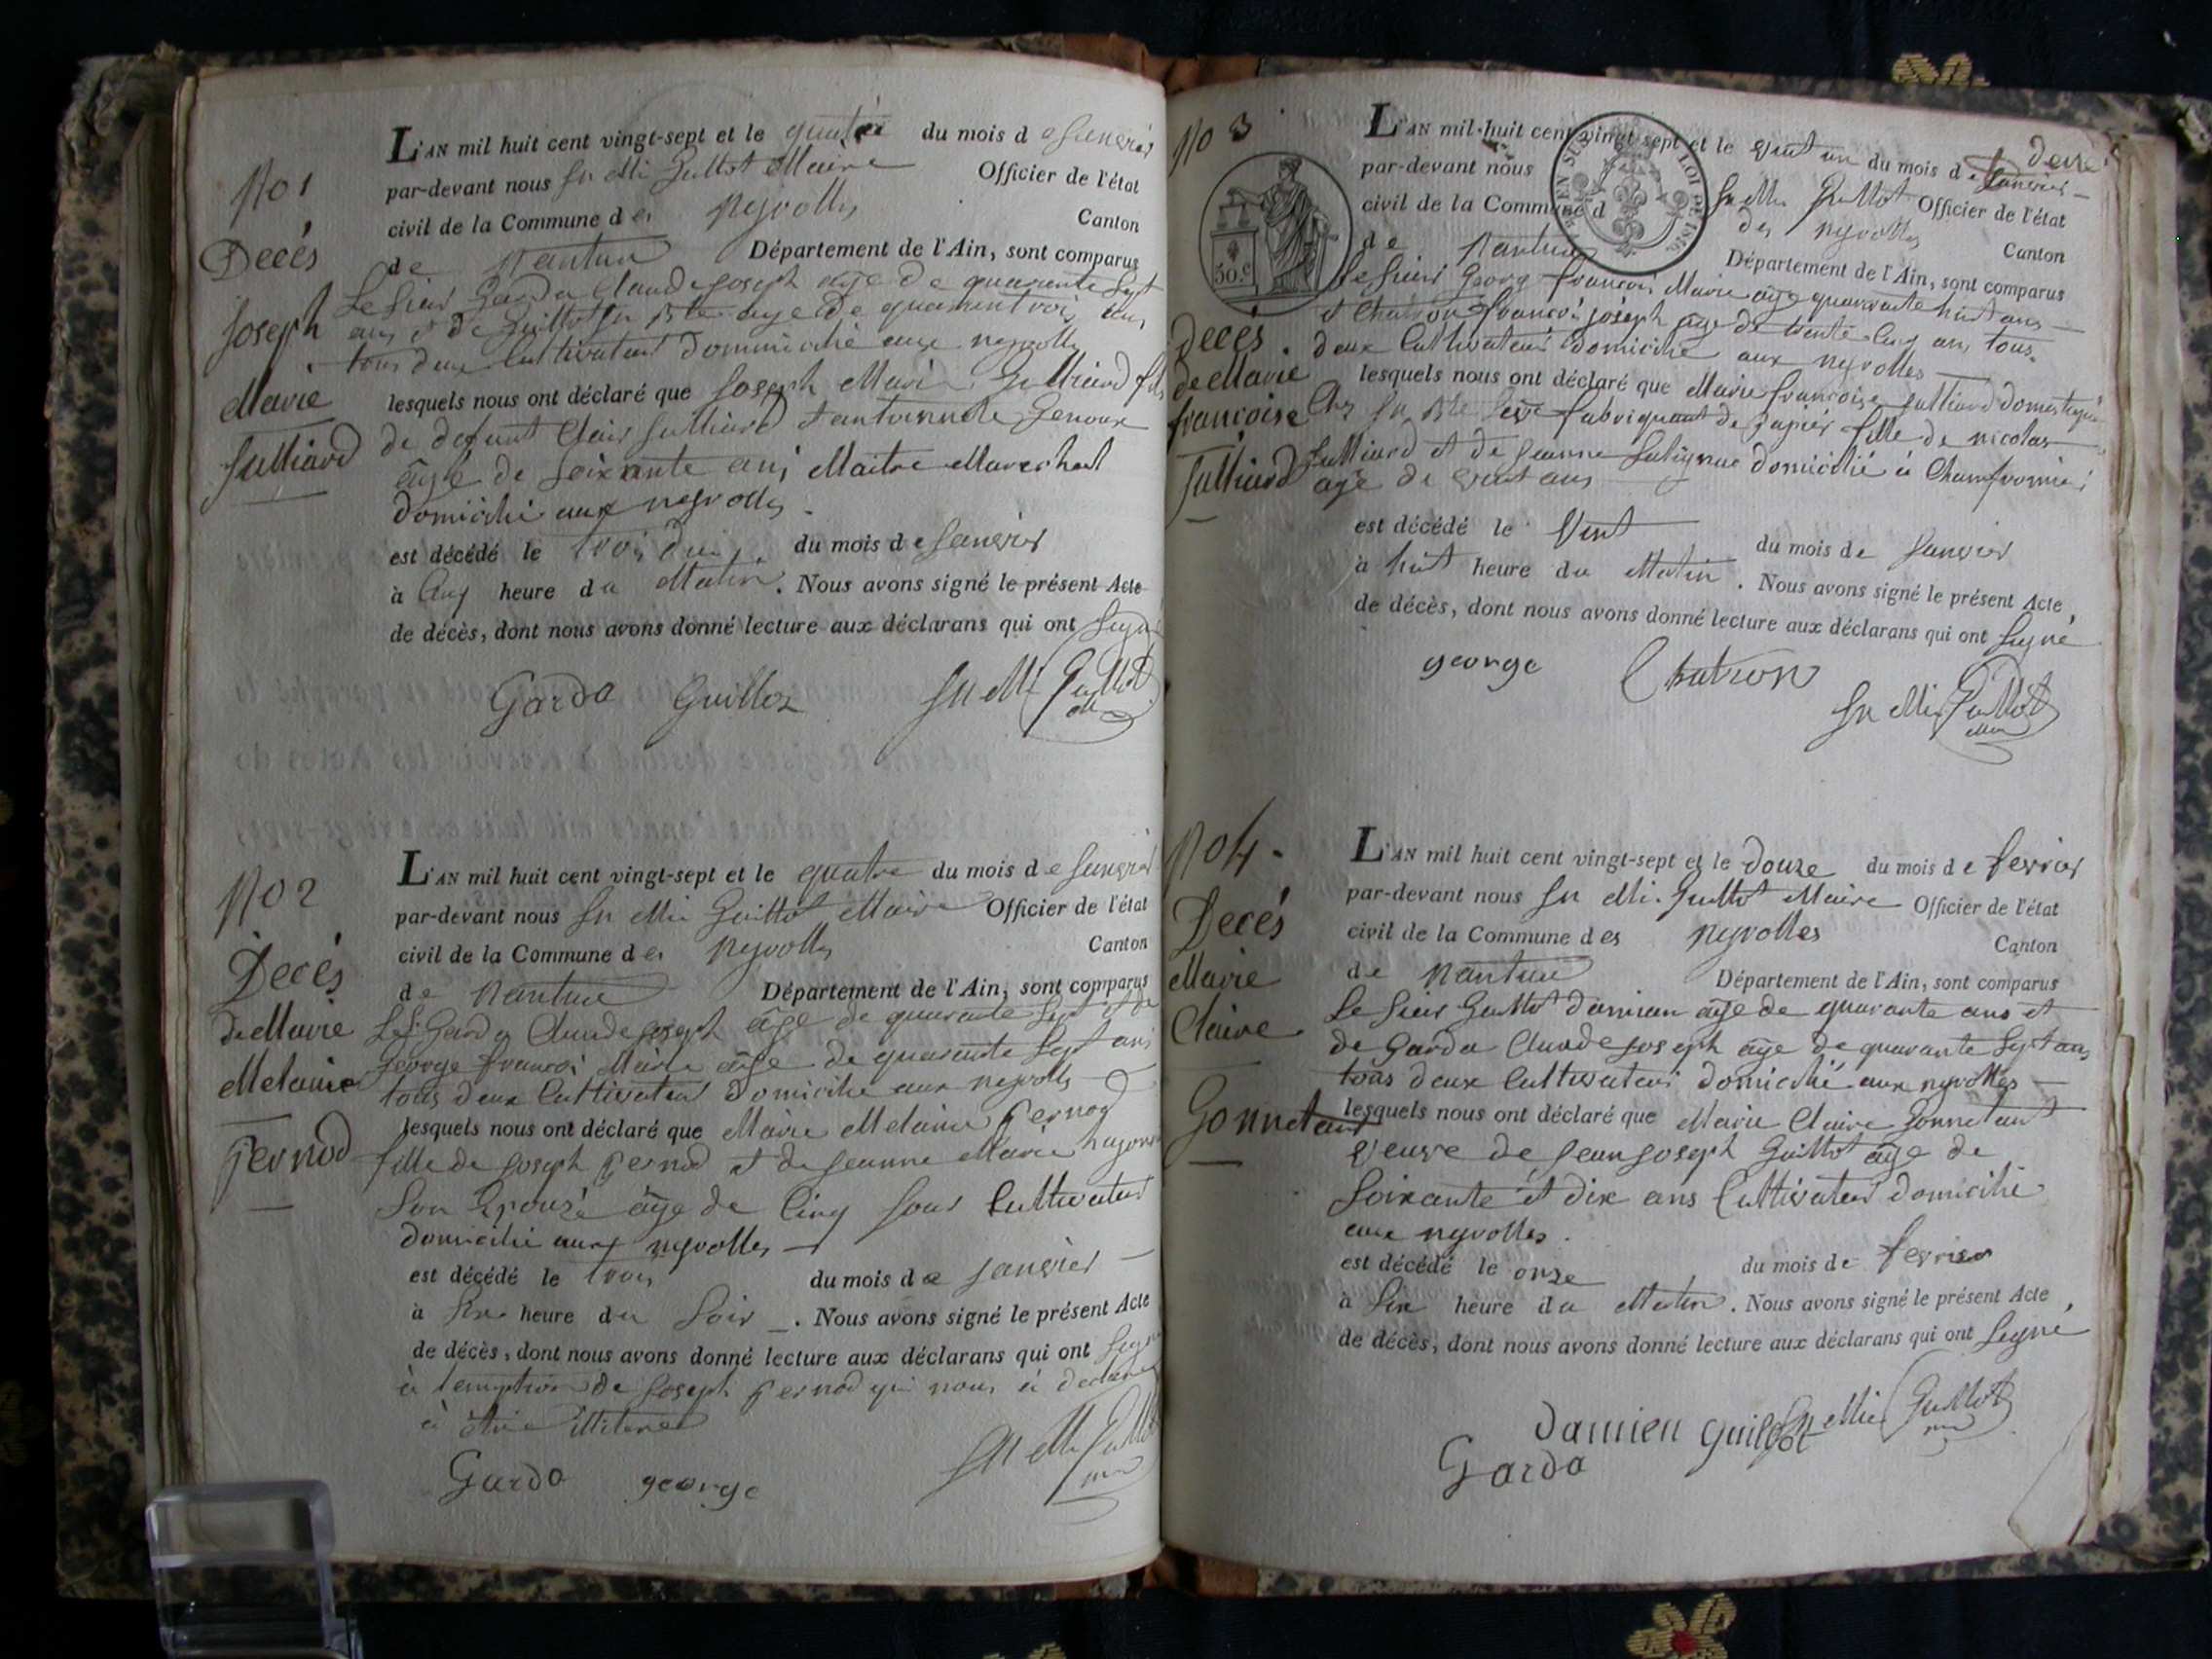 No 1
Decés
Joseph
Marie
Julliard
L'AN mil huit cent vingt-sept et le quatre du mois de Janvier
par-devant nous Jn Mi Guillot Maire Officier de l'état
civil de la Commune des Neyrolles Canton
de Nantua Département de l'Ain, sont comparus
Le Sieur Garda Claude Joseph age de quarante Sept
ans et de Guillot Jn Bte age de quarent trois ans
tous deux Cultivateur domicilié aux neyrolles
lesquels nous ont déclaré que Joseph Marie Julliard fils
de defunt Clair Julliard et antoinnete Genoux
âgé de Soixante ans Maitre Marechal
domicilié aux neyrolles
est décédé le trois du mois de Janvier
à Cinq heure du Matin. Nous avons signé le présent Acte
de décès, dont nous avons donné lecture aux déclarans qui ont Signé
Garda Guillot Jn Mi Guillot
No 2
Decés
de Marie
Melanie
Pernod
L'AN mil huit cent vingt-sept et le quatre du mois de Janvier
par-devant nous Jn Mi Guillot Maire Officier de l'état
civil de la Commune des Neyrolles Canton
de Nantua Département de l'Ain, sont comparus
Le Sr Garda Claude Joseph âge de quarante Sept et de
George francoi Marie âge de quarante Sept ans
tous deux Cultivateur domicilie aux neyrolles
lesquels nous ont déclaré que Marie Melanie Pernod
fille de Joseph Pernod et de Jeanne Marie
Son Epouse âge de Cinq Jour Cultivateur
domicilié aux neyrolles
est décédé le trois du mois de Janvier
à Six heure du Soir. Nous avons signé le présent Acte
de décès, dont nous avons donné lecture aux déclarans qui ont Signé
à de Joseph Pernod qui nous à declaré
à être
Garda george Jn Mi Guillot
No 3
EN SUS LOI DE 1816
30.c
deux
Decés
de Marie
francoise
Julliard
L'AN mil huit cent vingt-sept et le vint un du mois de Janvier
par-devant nous Jn Mi Guillot Officier de l'état
civil de la Commune des neyrolles Canton
de Nantua Département de l'Ain, sont comparus
Le Sieur Georg francois Marie âge quarante huit ans
et Chatron francoi joséph âge de trente Cinq ans tous
deux Cultivateur domicilié aux neyrolles
lesquels nous ont déclaré que Marie francoise Julliard domestique
Chez Jn Bte fabriquant de papier fille de nicolas
Julliard et de Jeanne domicilié à Chamfromier
âge de vint ans
est décédé le Vint du mois de Janvier
à huit heure du Matin. Nous avons signé le présent Acte
de décès, dont nous avons donné lecture aux déclarans qui ont Signé
george Chatron
Jn Mi Guillot
No 4
Decés
Marie
Claire
Gonnetant
L'AN mil huit cent vingt-sept et le douze du mois de fevrier
par-devant nous Jn Mi Guillot Maire Officier de l'état
civil de la Commune des Neyrolles Canton
de Nantua Département de l'Ain, sont comparus
Le Sieur Guillot damien âge de quarante ans et
de Garda Claude Joseph âge de quarante Sept ans
tous deux Cultivateur domicilié aux neyrolles
lesquels nous ont déclaré que Marie Claire Gonnetant
veuve de Jean Joseph Guillot âge de
Soixante et dix ans Cultivateur domicilié
aux neyrolles.
est décédé le onze du mois de fevrier
à Six heure du Matin. Nous avons signé le présent Acte
de décès, dont nous avons donné lecture aux déclarans qui ont Signé
damien guillot Jn Mi Guillot
Garda